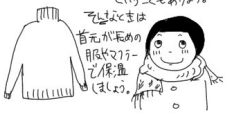 そんなときは
首元が長めの
服やマフラー
で保温
しましょう。